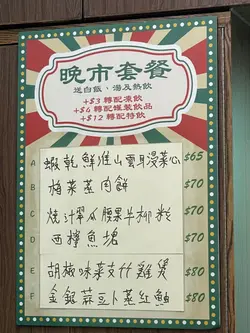 晚市套餐
送白飯、湯及熱飲
+$3 轉配凍飲
+$6 轉配罐裝飲品
+$12 轉配特飲
A 蝦乾鮮淮山雲耳浸菜心 $65
B 梅菜蒸肉餅 $70
C 燒汁翠瓜腰果牛柳粒 $70
D 西檸魚塊 $70
E 胡椒味菜支竹雞煲 $80
F 金銀蒜豆卜蒸紅鱼 $80